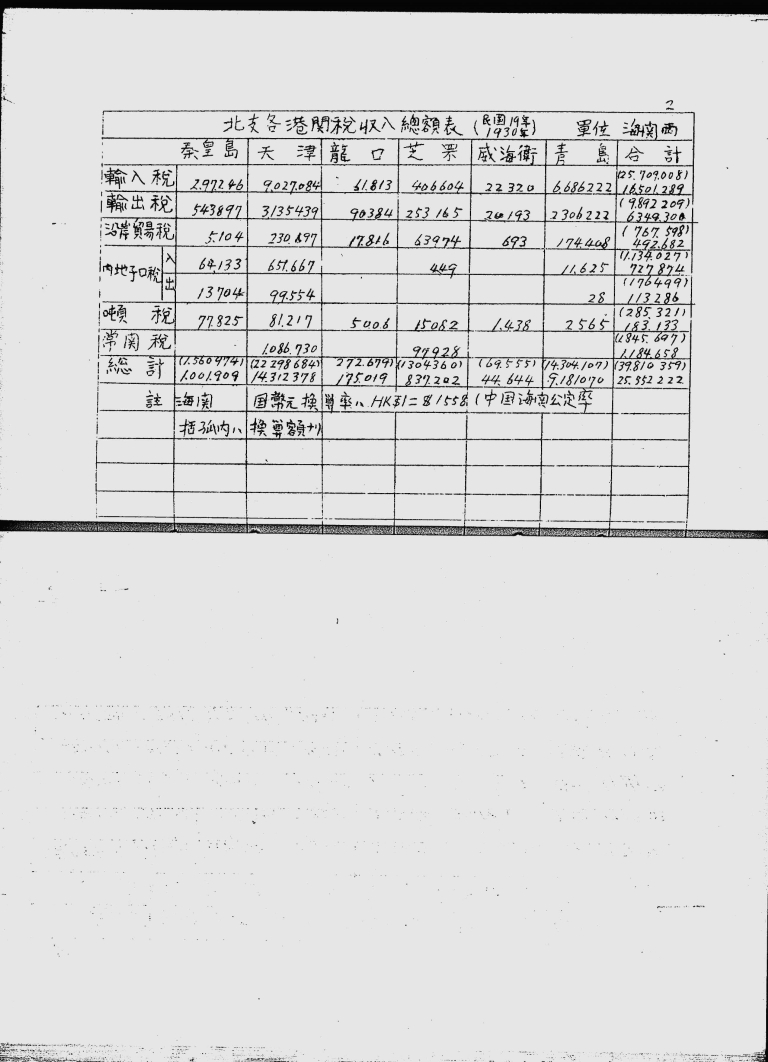 2
北支各港関税収入總額表 (民国19年 1930年) 單位 海関両
秦皇島 天津 龍口 芝罘 威海衛 青島 合計
(25.709.008)
輸入税 297246 9.027.084 61.813 406604 22320 6.686222 16.501.289
(9.892209)
輸出税 543897 3.135439 90384 253165 20193 2306222 6349.300
(767.598)
沿岸貿易税 5.104 230.697 17.816 63974 693 174.408 492.682
(1.134.027)
内地子口税 入 64.133 651.667 449 11.625 727874
(176499)
出 13704 99.554 28 113286
(285.321)
噸税 77.825 81.217 5006 15082 1.438 2565 183.133
(1.845.697)
常関税 1.086.730 97928 1.184.658
総計 (1.560974) (22298684) 272.679) (1304360) (69.555) (14.304.107) (39.810359)
1.001.909 14.312378 175.019 837.202 44.644 9.181070 25.552222
註 海関 国幣元換算率ハ HK$1=$1558 (中国海関公定率
括弧内ハ 換算額ナリ